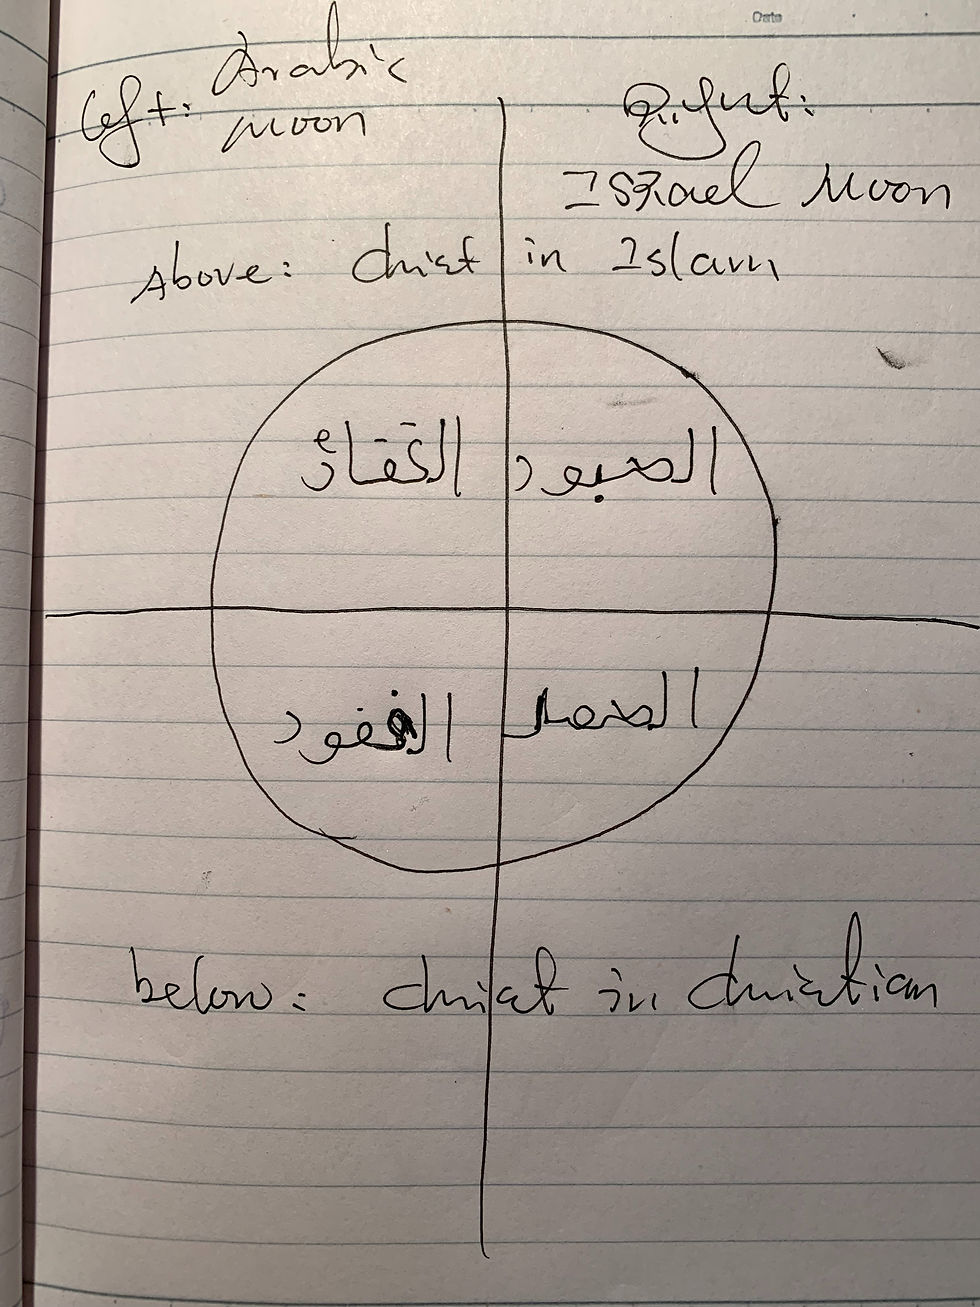 Date
Left: Arabic
moon
Right:
Israel Moon
Above: Christ in Islam
الصبور
الصمد
below: Christ in Christian